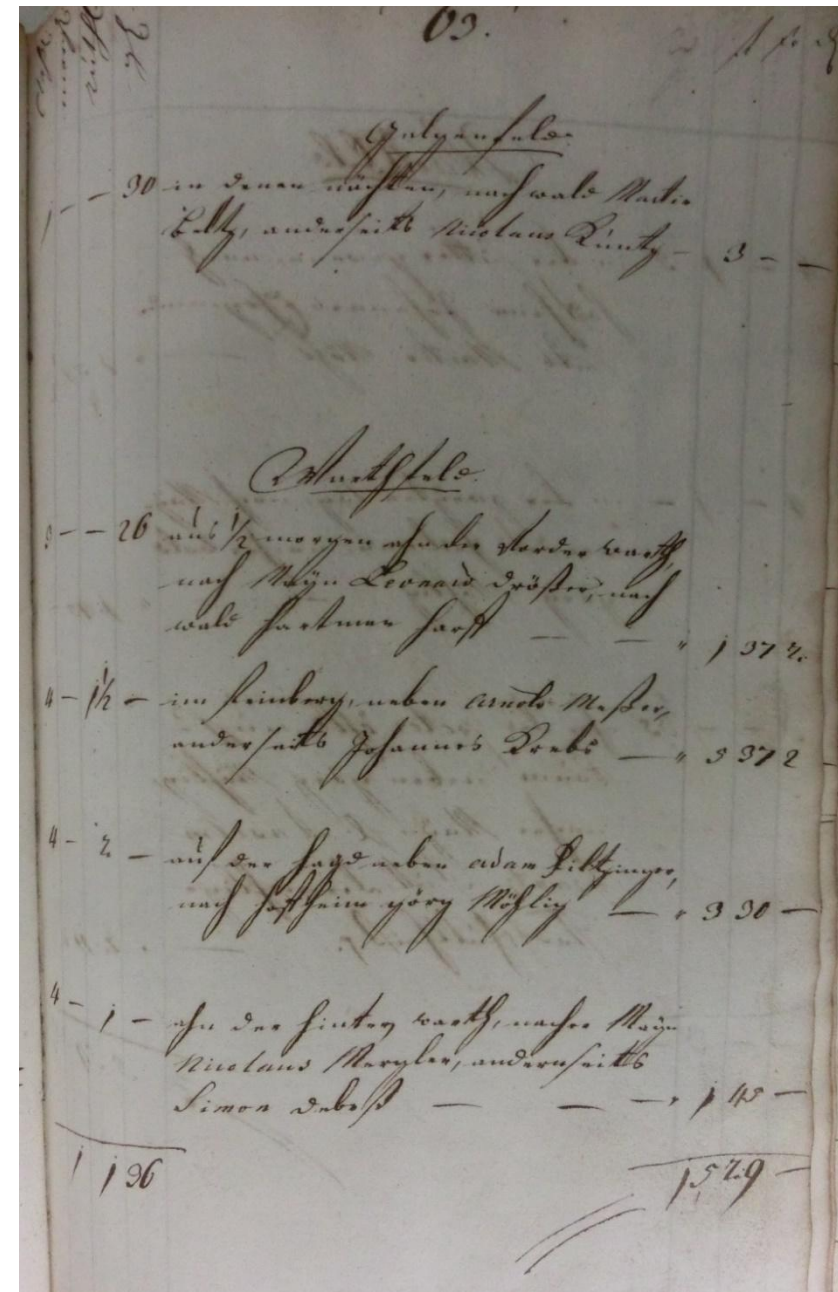 63.
fl xr
Galgenfeld.
1 - - 30 in denen nächsten, nach wald Martin
Beltz, anderseits Nicolaus Küntz - 3 - -
Warthfeld.
3 - - 26 aus 1/2 morgen ahn der Vorder warth,
nach Mayn Leonard Dräßer, nach
wald Hartman Harst — — " 1 37 2
4 - 1 1/2 - im steinberg, neben Arnold Meßer,
anderseits Johannes Krebs — " 5 37 2
4 - 2 - auf der Hagd neben Adam
nach Hoffheim görg Möhlig — " 3 30 -
4 - 1 - ahn der hinter warth, nacher Mayn
Nicolaus Mergler, andernseits
Simon Debeß — — " 1 45 -
1 1 36 15 29 -